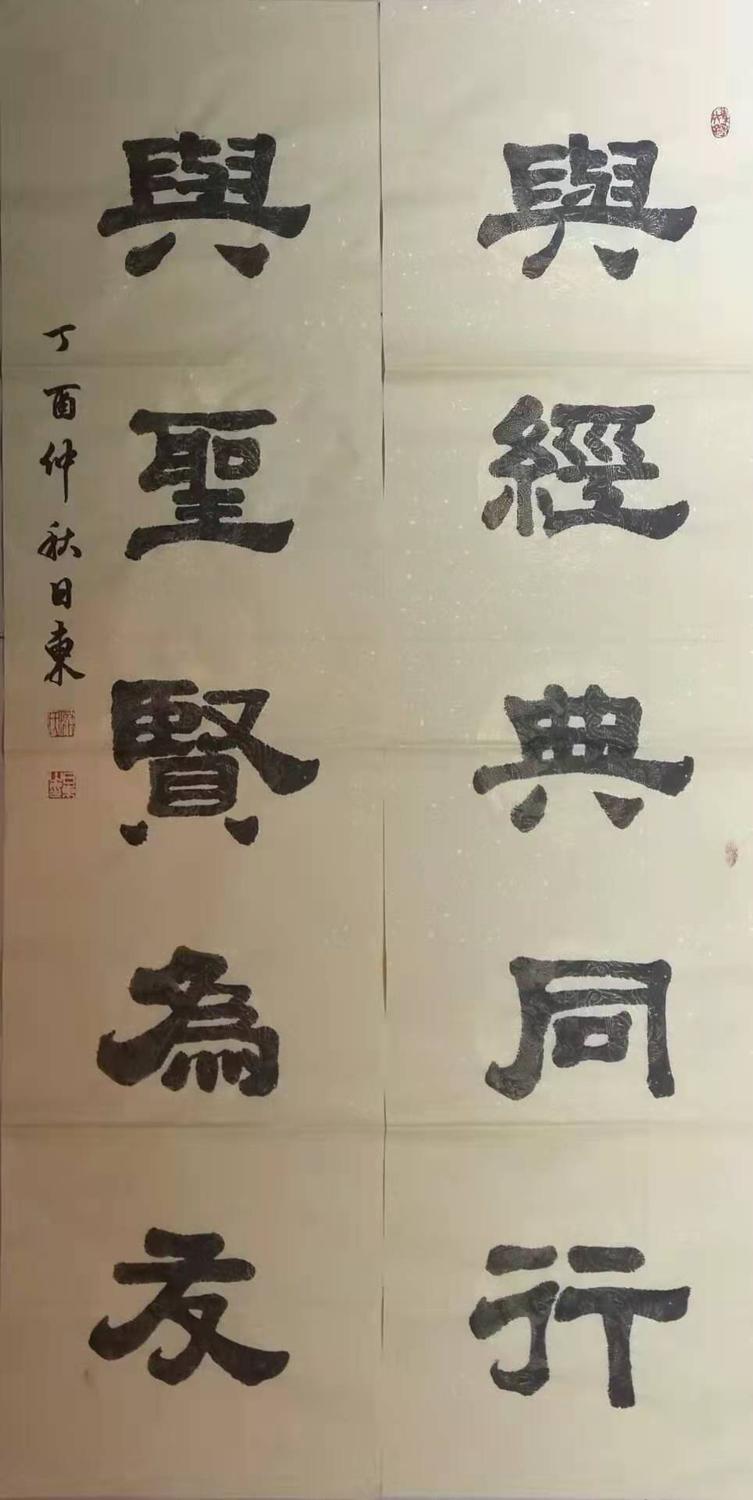 與經典同行
與聖賢為友
丁酉仲秋日東